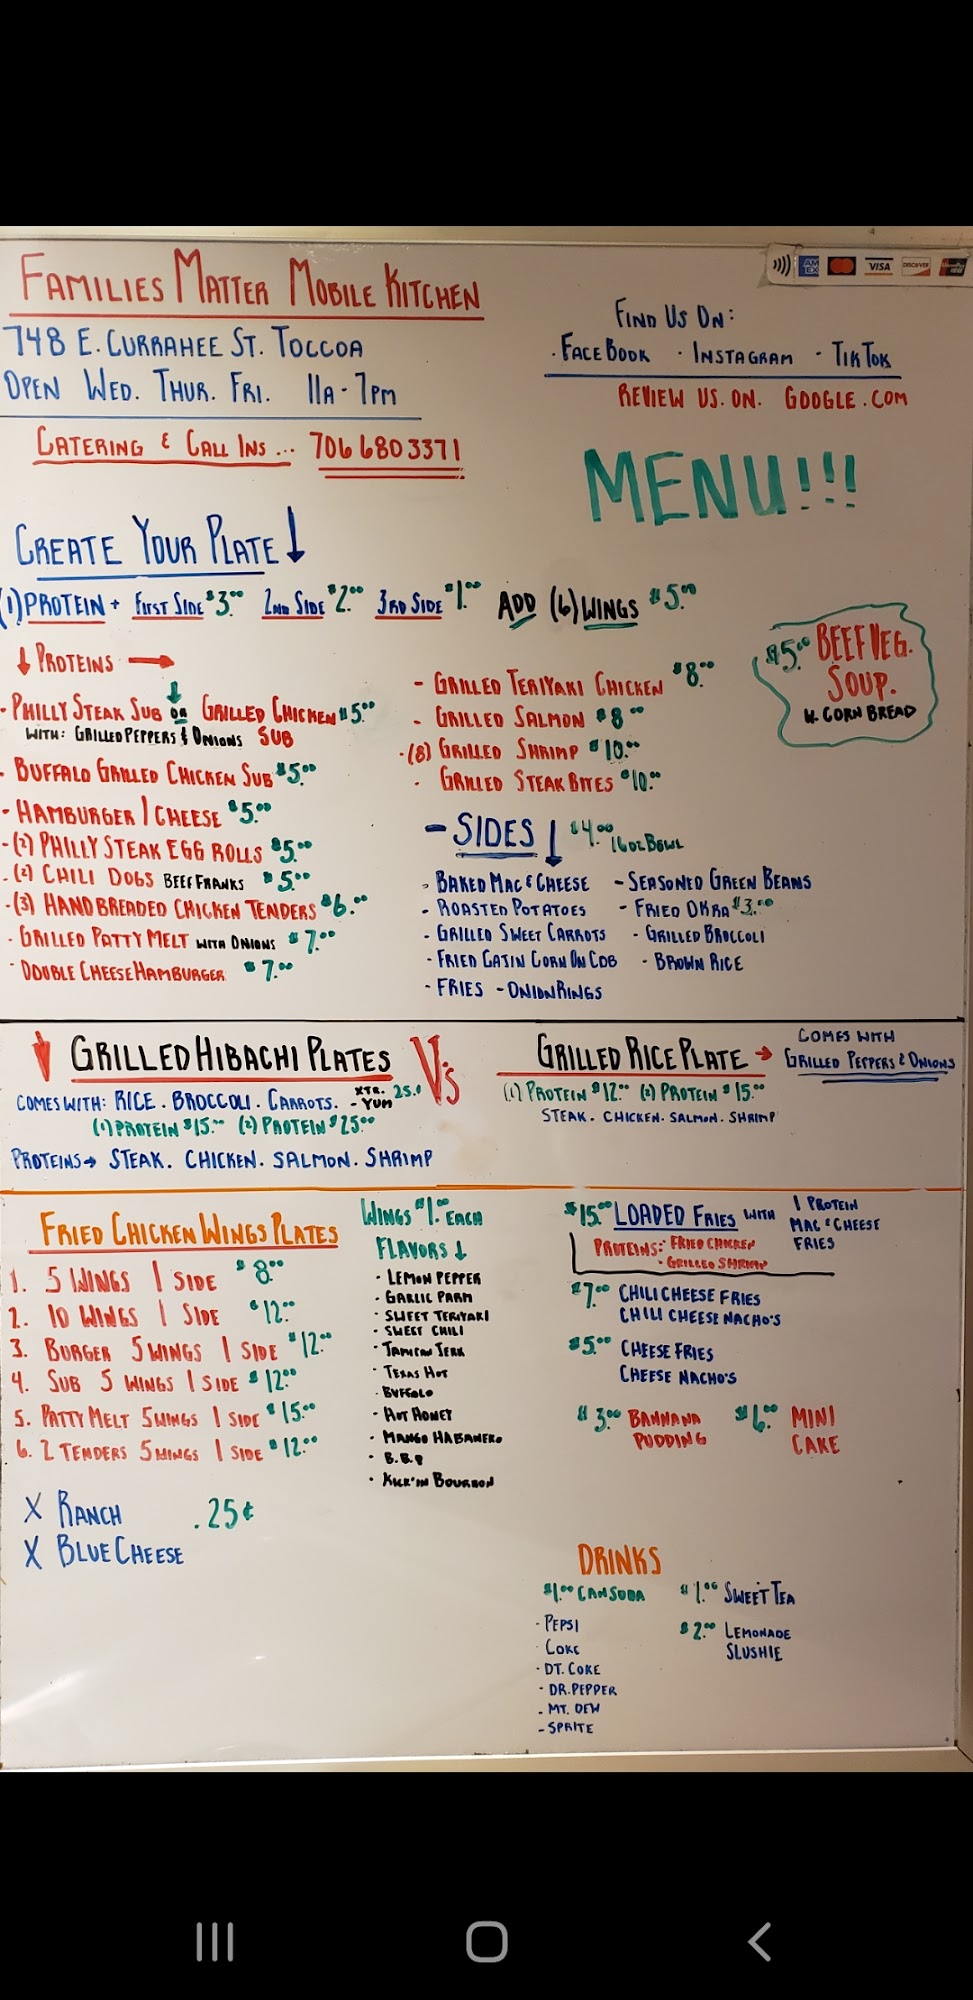 FAMILIES MATTER MOBILE KITCHEN
748 E. CURRAHEE ST. TOCCOA
OPEN WED. THUR. FRI. 11A - 7PM
CATERING & CALL INS... 706 680 3371
AM EX
VISA
DISCOVER
FIND US ON:
· FACEBOOK · INSTAGRAM · TIKTOK
REVIEW US. ON. GOOGLE.COM
MENU!!!
CREATE YOUR PLATE ↓
(1) PROTEIN + FIRST SIDE $3.00 2ND SIDE $2.00 3RD SIDE $1.00 ADD (6) WINGS $5.00
↓ PROTEINS →
- PHILLY STEAK SUB OR GRILLED CHICKEN $5.00
WITH: GRILLED PEPPERS & ONIONS SUB
- BUFFALO GRILLED CHICKEN SUB $5.00
- HAMBURGER / CHEESE $5.00
- (2) PHILLY STEAK EGG ROLLS $5.00
- (2) CHILI DOGS BEEF FRANKS $5.00
- (3) HAND BREADED CHICKEN TENDERS $6.00
- GRILLED PATTY MELT WITH ONIONS $7.00
- DOUBLE CHEESE HAMBURGER $7.00
- GRILLED TERIYAKI CHICKEN $8.00
- GRILLED SALMON $8.00
- (8) GRILLED SHRIMP $10.00
- GRILLED STEAK BITES $10.00
$5.00 BEEF VEG.
SOUP.
W. CORN BREAD
- SIDES ↓ $4.00 16 OZ BOWL
- BAKED MAC & CHEESE - SEASONED GREEN BEANS
- ROASTED POTATOES - FRIED OKRA $3.00
- GRILLED SWEET CARROTS - GRILLED BROCCOLI
- FRIED CATIN CORN ON COB - BROWN RICE
- FRIES - ONION RINGS
↓ GRILLED HIBACHI PLATES Vs
COMES WITH: RICE. BROCCOLI. CARROTS. XTR. - YUM 25.¢
(1) PROTEIN $15.00 (2) PROTEIN $25.00
PROTEINS → STEAK. CHICKEN. SALMON. SHRIMP
GRILLED RICE PLATE → COMES WITH
GRILLED PEPPERS & ONIONS
(1) PROTEIN $12.00 (2) PROTEIN $15.00
STEAK. CHICKEN. SALMON. SHRIMP
FRIED CHICKEN WINGS PLATES
1. 5 WINGS 1 SIDE $8.00
2. 10 WINGS 1 SIDE $12.00
3. BURGER 5 WINGS 1 SIDE $12.00
4. SUB 5 WINGS 1 SIDE $12.00
5. PATTY MELT 5 WINGS 1 SIDE $15.00
6. 2 TENDERS 5 WINGS 1 SIDE $12.00
X RANCH .25¢
X BLUE CHEESE
WINGS $1.00 EACH
FLAVORS ↓
· LEMON PEPPER
· GARLIC PARM
· SWEET TERIYAKI
· SWEET CHILI
· JAMICAN JERK
· TEXAS HOT
· BUFFALO
· HOT HONEY
· MANGO HABANERO
· B.B.Q
· KICK'IN BOURBON
$15.00 LOADED FRIES WITH 1 PROTEIN
MAC & CHEESE
FRIES
PROTEINS: · FRIED CHICKEN
· GRILLED SHRIMP
$7.00 CHILI CHEESE FRIES
CHILI CHEESE NACHO'S
$5.00 CHEESE FRIES
CHEESE NACHO'S
$3.00 BANNANA
PUDDING
$6.00 MINI
CAKE
DRINKS
$1.00 CAN SODA
- PEPSI
- COKE
- DT. COKE
- DR. PEPPER
- MT. DEW
- SPRITE
$1.00 SWEET TEA
$2.00 LEMONADE
SLUSHIE